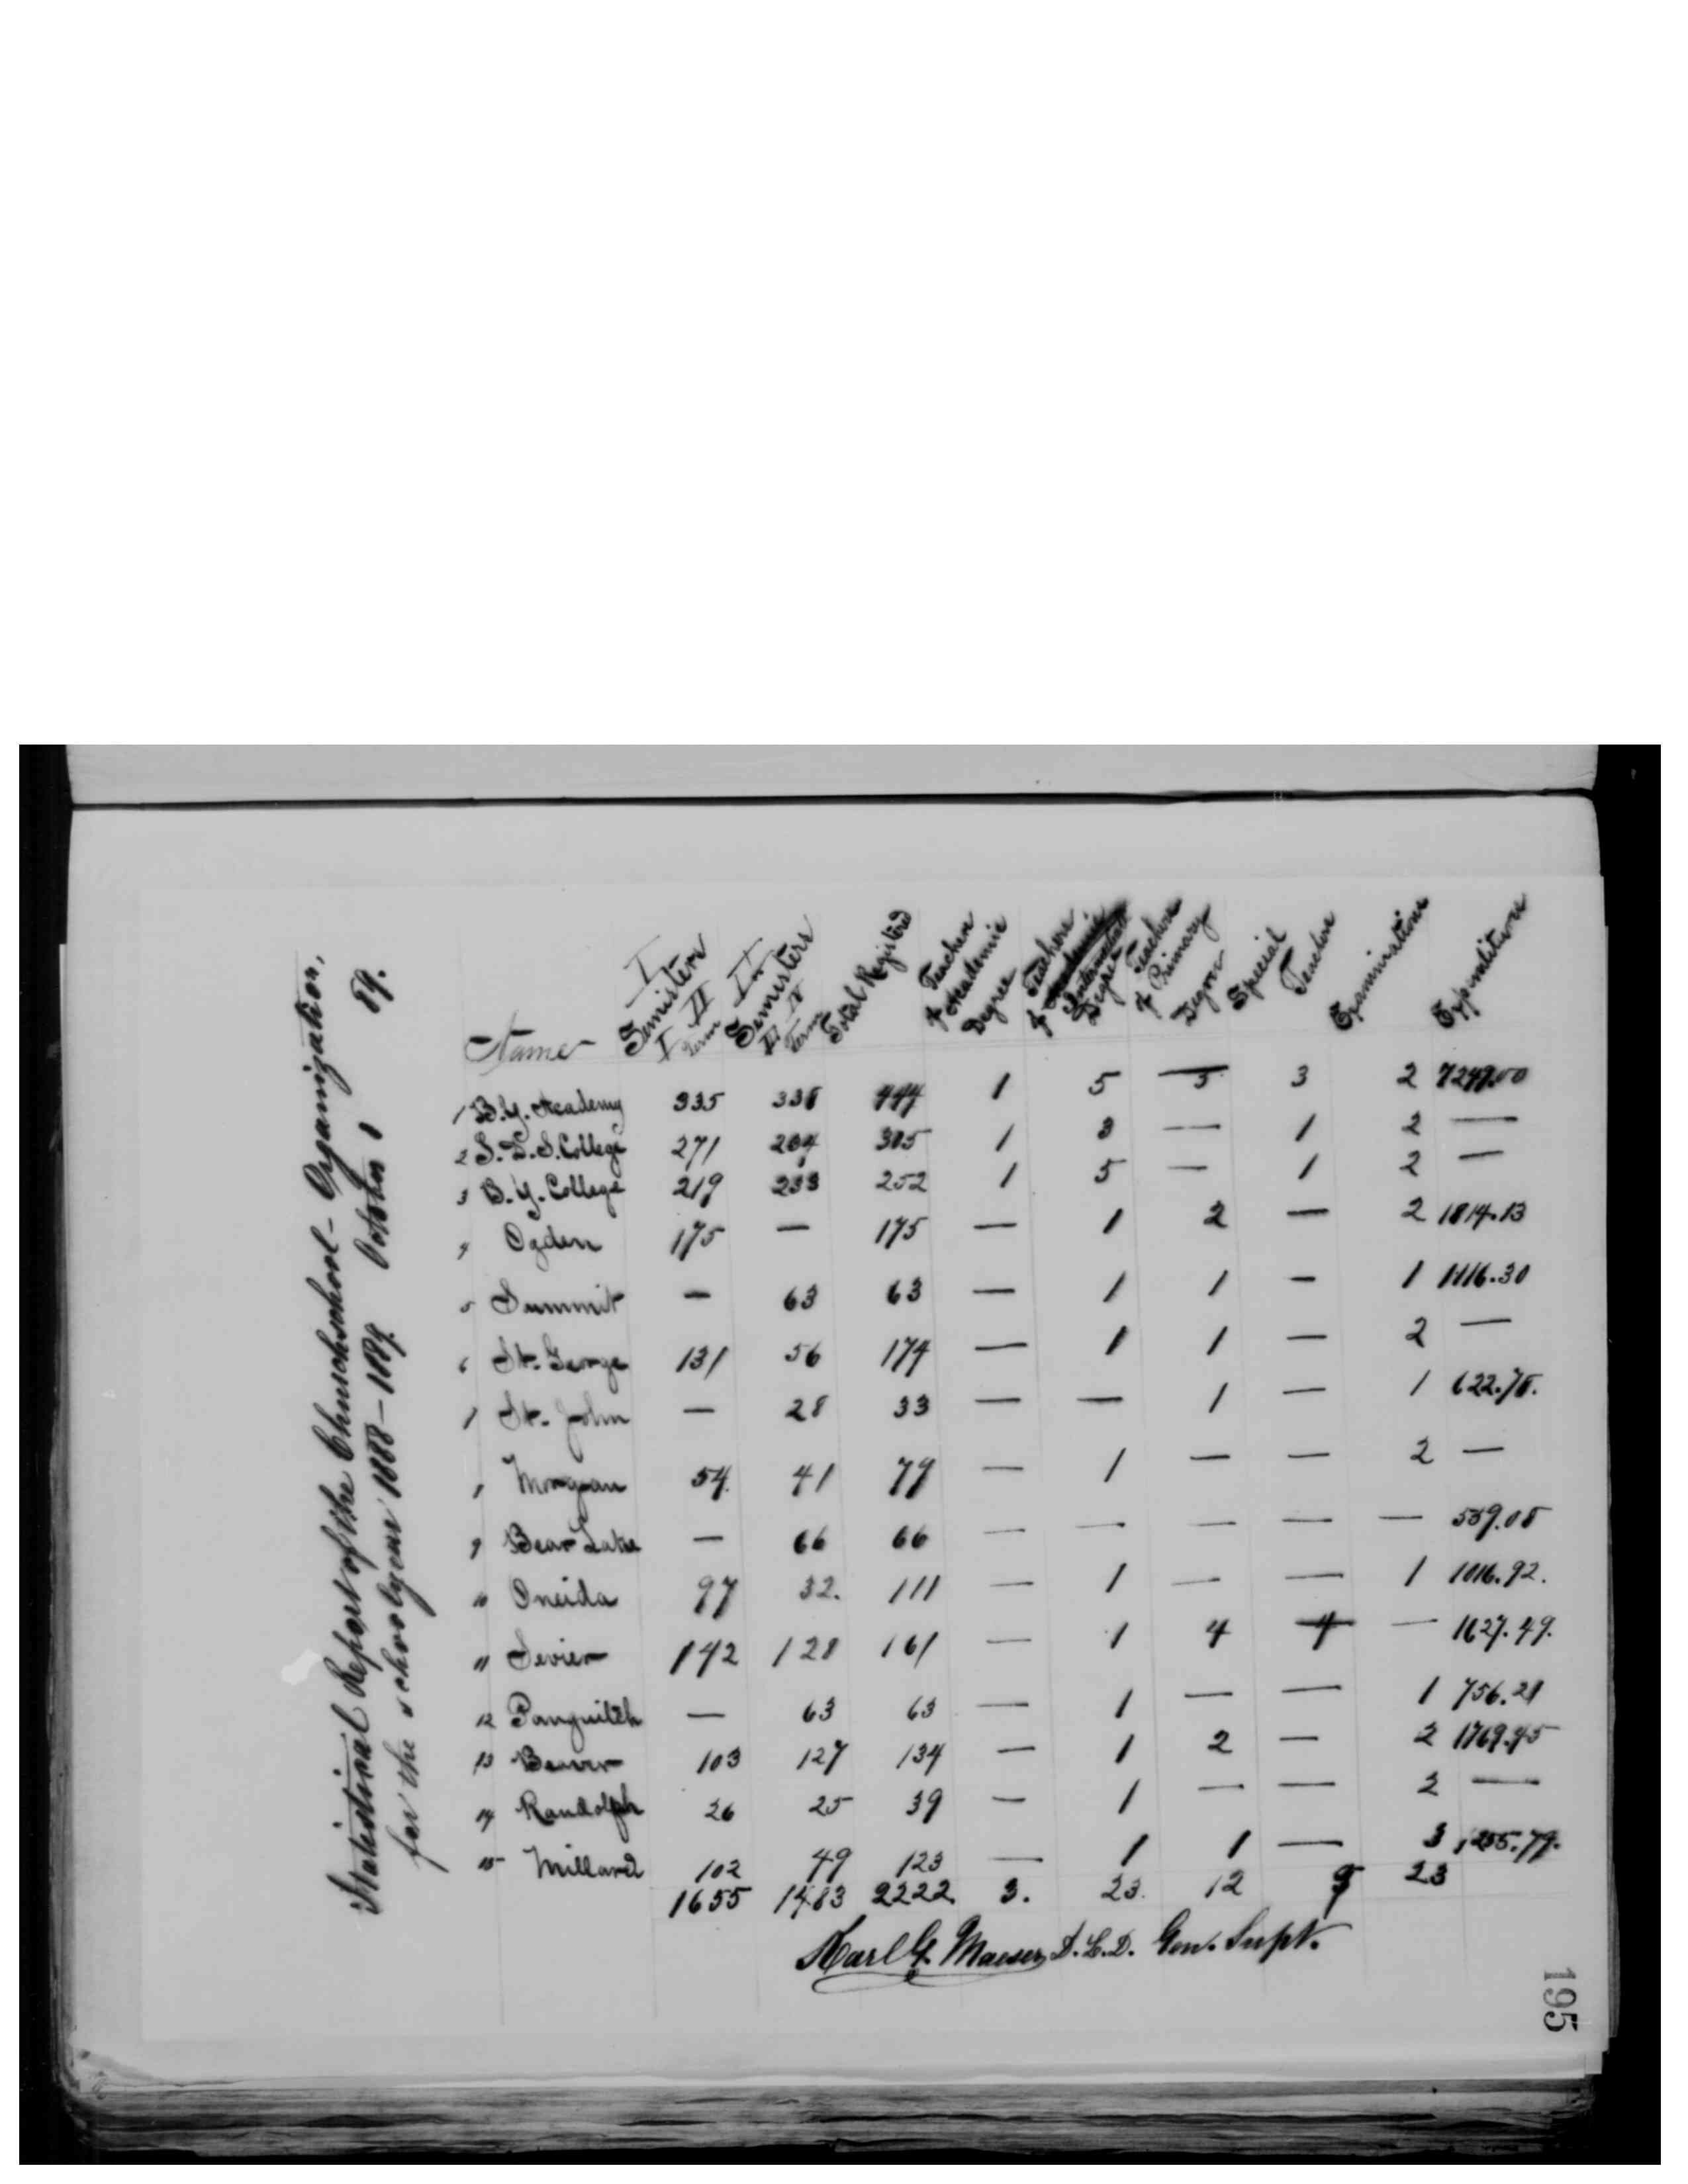 Statistical Report of the Churchschool-Organization,
for the schoolyear 1888-1889. October 89.
Name I Semister I II Term II Semister III IV Term Total Registered # Teachers Academic Degree # Teachers Intermediate Degree # Teachers Primary Degree Special Teachers Examinations Expenditure
1 B.Y. Academy 335 338 444 1 5 5 3 2 7249.00
2 S. L. S. College 271 264 305 1 3 — 1 2 —
3 B. Y. College 219 233 252 1 5 — 1 2 —
4 Ogden 175 — 175 — 1 2 — 2 1814.13
5 Summit — 63 63 — 1 1 — 1 1116.30
6 St. George 131 56 174 — 1 1 — 2 —
7 St. John — 28 33 — — 1 — 1 622.78.
8 Morgan 54. 41 79 — 1 — — 2 —
9 Bear Lake — 66 66 — — — — — 539.08
10 Oneida 97 32. 111 — 1 — — 1 1016.92.
11 Sevier 142 128 161 — 1 4 4 — 1627.49.
12 Panguitch — 63 63 — 1 — — 1 756.21
13 Beaver 103 127 134 — 1 2 — 2 1769.45
14 Randolph 26 25 39 — 1 — — 2 —
15 Millard 102 49 123 — 1 1 — 3 1255.79.
1655 1483 2222 3. 23. 12 9 23
Karl G. Maeser, D. L. D. Gen. Supt.
195